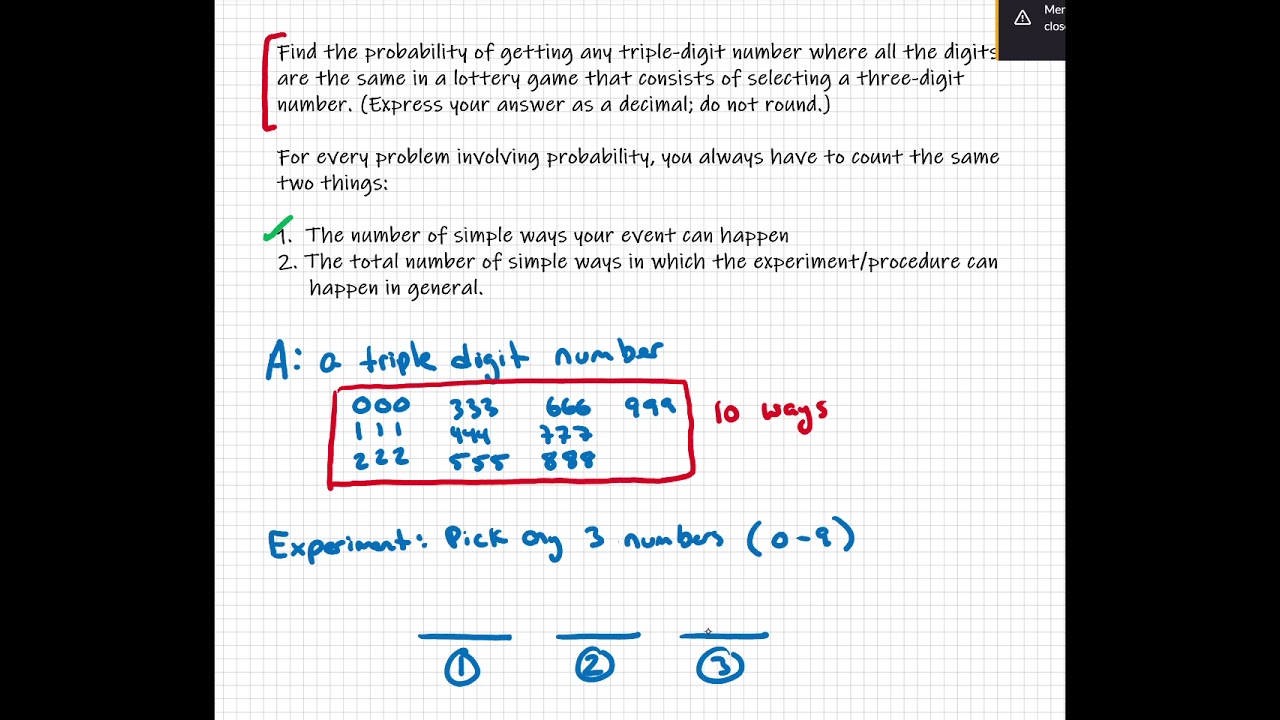 Mer
close
Find the probability of getting any triple-digit number where all the digits
are the same in a lottery game that consists of selecting a three-digit
number. (Express your answer as a decimal; do not round.)
For every problem involving probability, you always have to count the same
two things:
1. The number of simple ways your event can happen
2. The total number of simple ways in which the experiment/procedure can
happen in general.
A: a triple digit number
000 333 666 999
111 444 777
222 555 888
10 ways
Experiment: Pick any 3 numbers (0-9)
1 2 3